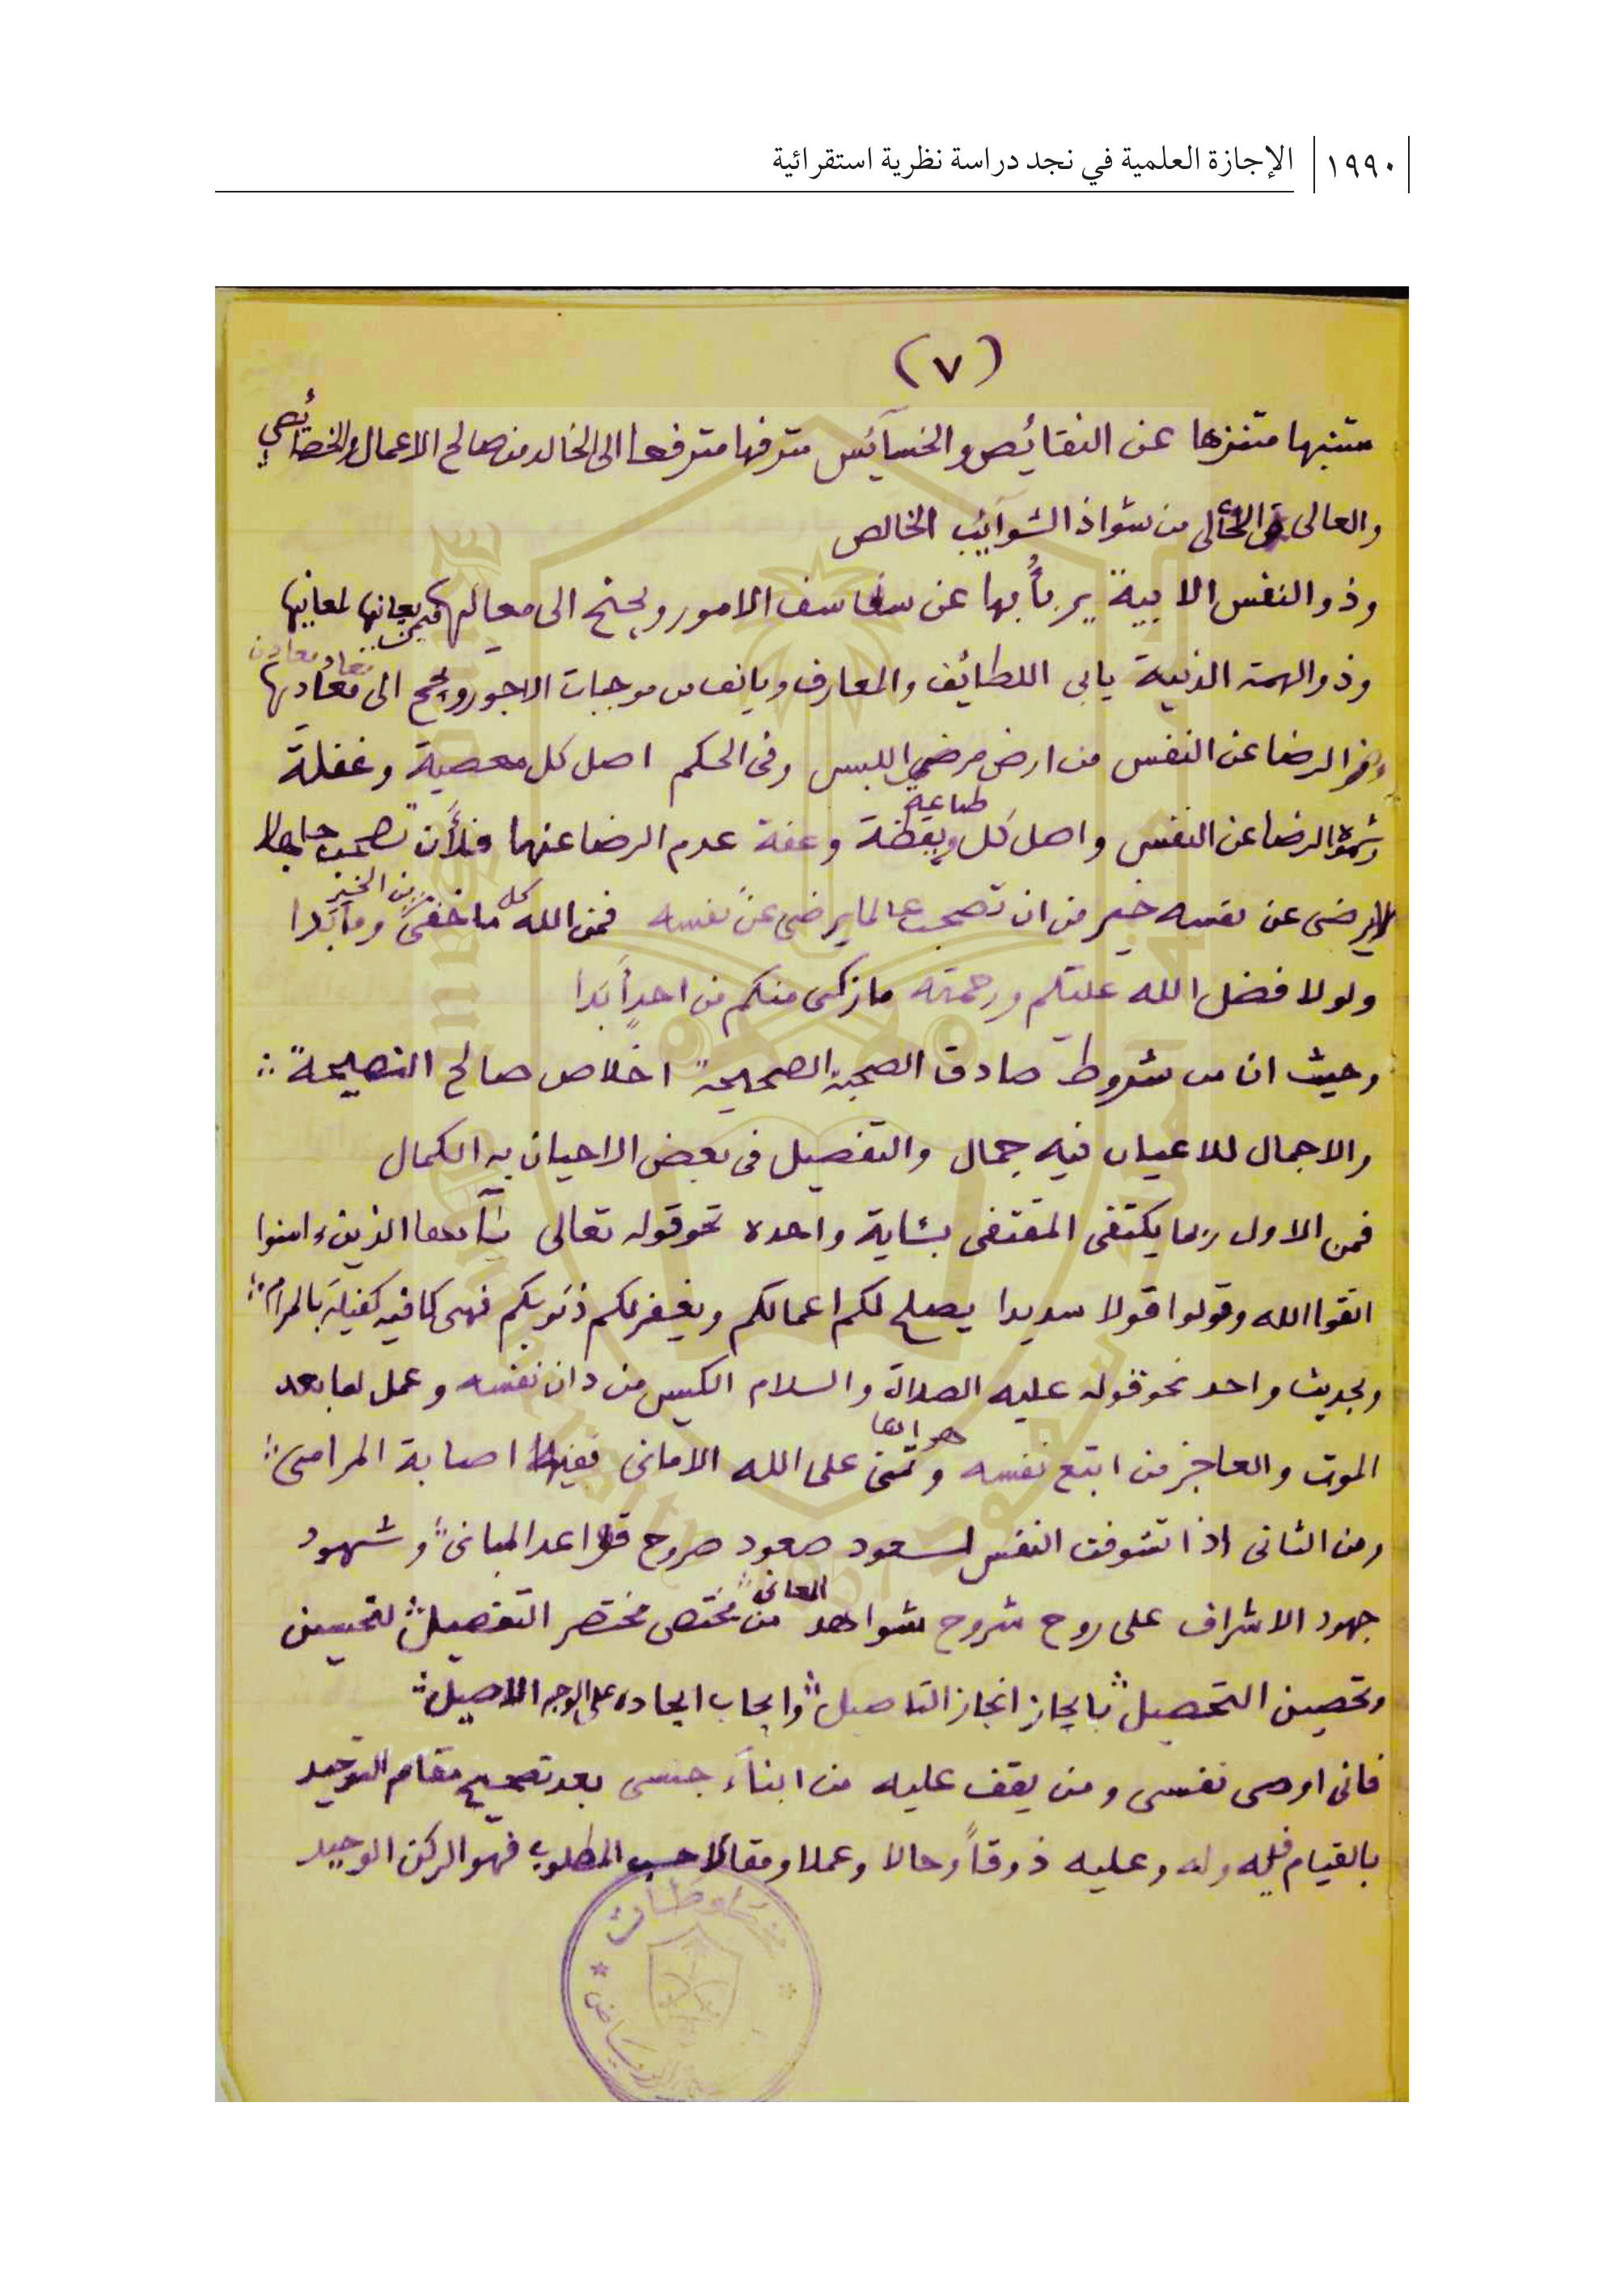 ١٩٩٠ الإجازة العلمية في نجد دراسة نظرية استقرائية
(٧)
متنبها متنزها عن النقائص والخسآئس مترفها مترفعا الى الخالد من صالح الاعمال والخصائص
والعالى الخالى من شواذ الشوآئب الخالص
وذو النفس الابية يربأُ بها عن سفاسف الامور ويجنح الى معاليها فيمن يعانيها لمعانيها
وذو الهمة الدنية يابى اللطائف والمعارف ويانف من موجبات الاجور ويجمح الى معاديها
الرضا عن النفس من ارض مرضي اللبس وفى الحكم اصل كل معصية وغفلة
وشهوة الرضا عن النفس واصل كل طاعة ويقظة وعفة عدم الرضا عنها فلأَن تصحب جاهلا
لايرضى عن نفسه خير من ان تصحب عالما يرضى عن نفسه فمن الله كل ما خفى من الخير وما بدا
ولولا فضل الله عليكم ورحمته ما زكى منكم من احدٍ أبدا
وحيث ان من شروط صادق الصحبة الصحيحة اخلاص صالح النصيحة
والاجمال للاعيان فيه جمال والتفصيل فى بعض الاحيان به الكمال
فمن الاول ربما يكتفى المقتفى بئاية واحده نحو قوله تعالى يٰأيها الذين ءامنوا
اتقوا الله وقولوا قولا سديدا يصلح لكم اعمالكم ويغفر لكم ذنوبكم فهى كافية كفيلة بالمرام
وبحديث واحد نحو قوله عليه الصلاة والسلام الكيس من دان نفسه وعمل لما بعد
الموت والعاجز من اتبع نفسه هواها وتمنى على الله الامانى ففيها اصابة المرامى
ومن الثانى اذا تشوفت النفس لسعود صعود صروح قواعد المبانى وشهود
جهود الاشراف على روح شروح شواهد المعانى من مختص مختصر التفصيل لتحسين
وتحصين التحصيل بايجاز انجاز التاصيل وايجاب ايجاده على الوجه الاصيل
فانى اوصى نفسى ومن يقف عليه من ابناء جنسى بعد تصحيح مقام التوحيد
بالقيام فيه وله وعليه ذوقاً وحالا وعملا ومقالا حسب المطلوب فهو الركن الوحيد